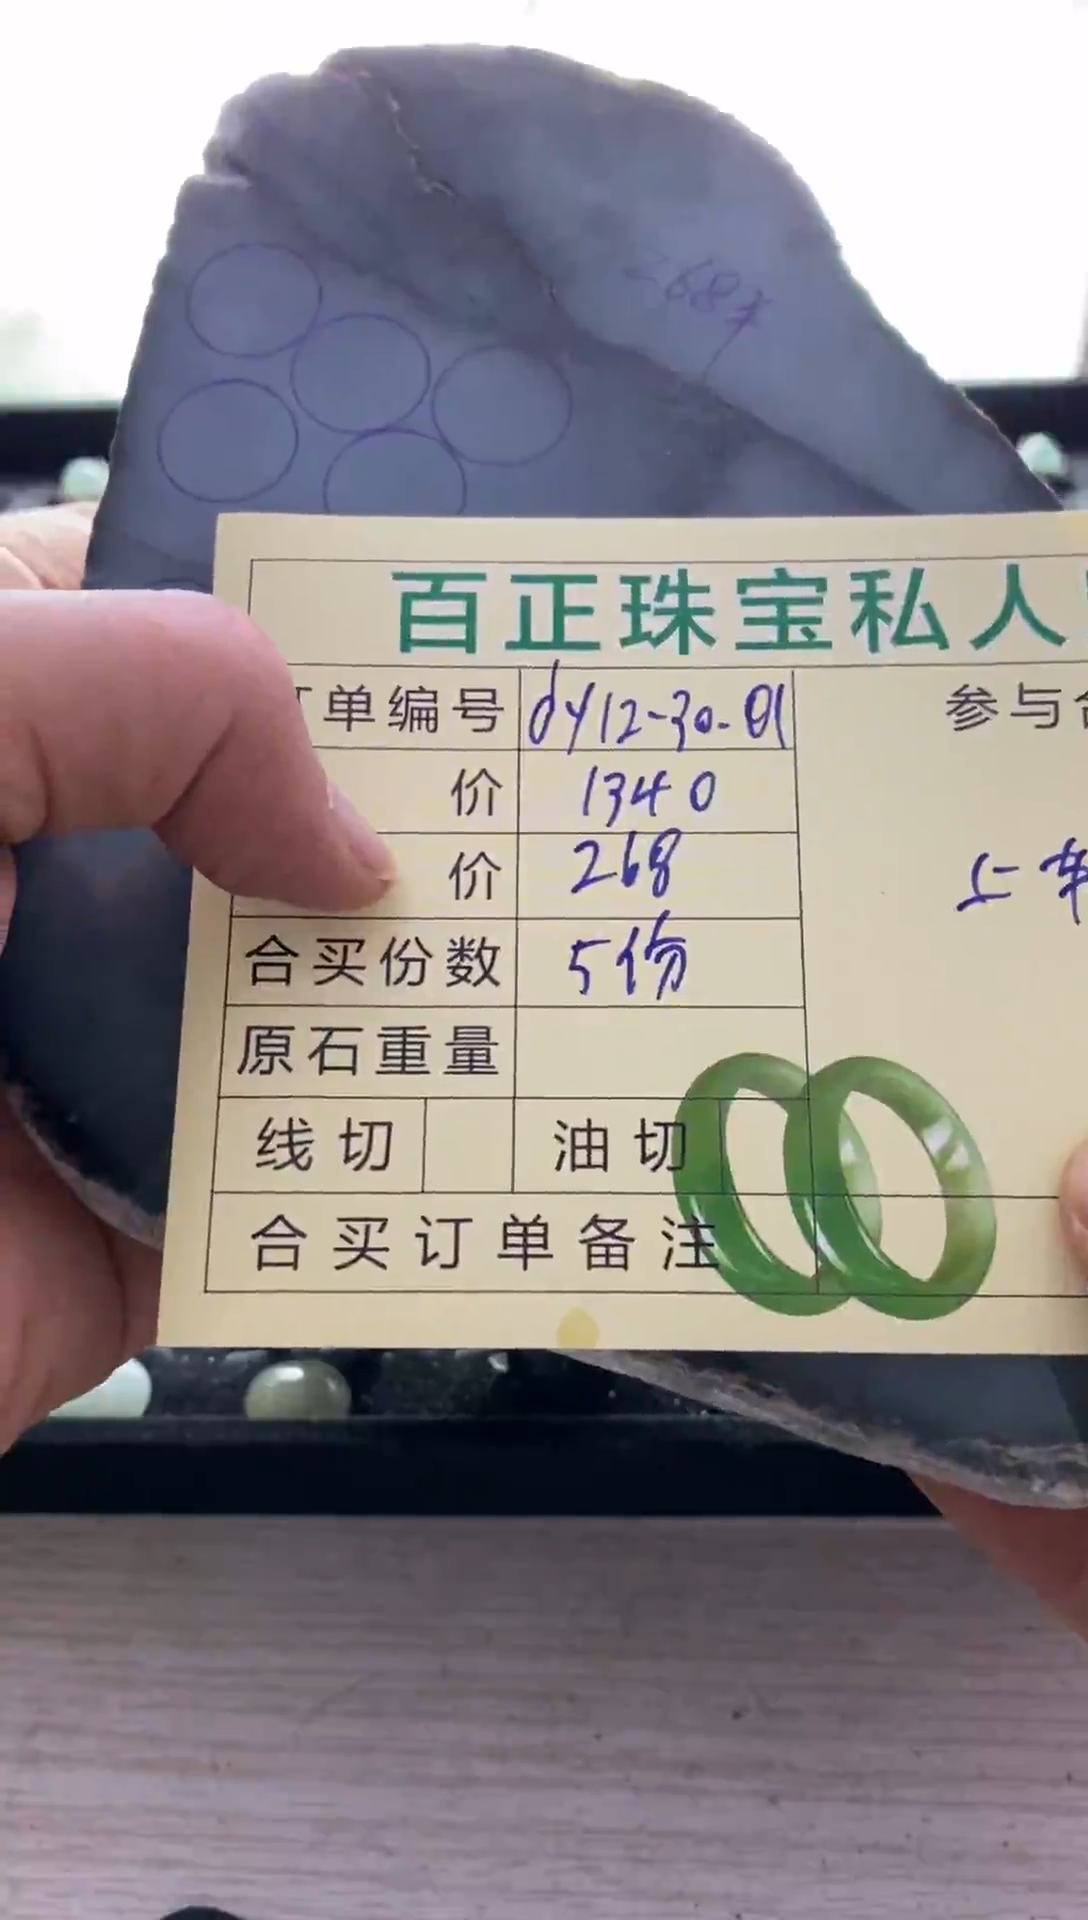 268
百正珠宝私人
单编号 dy12-30-01 参与合
价 1340
价 268
合买份数 5份
原石重量
线切 油切
合买订单备注